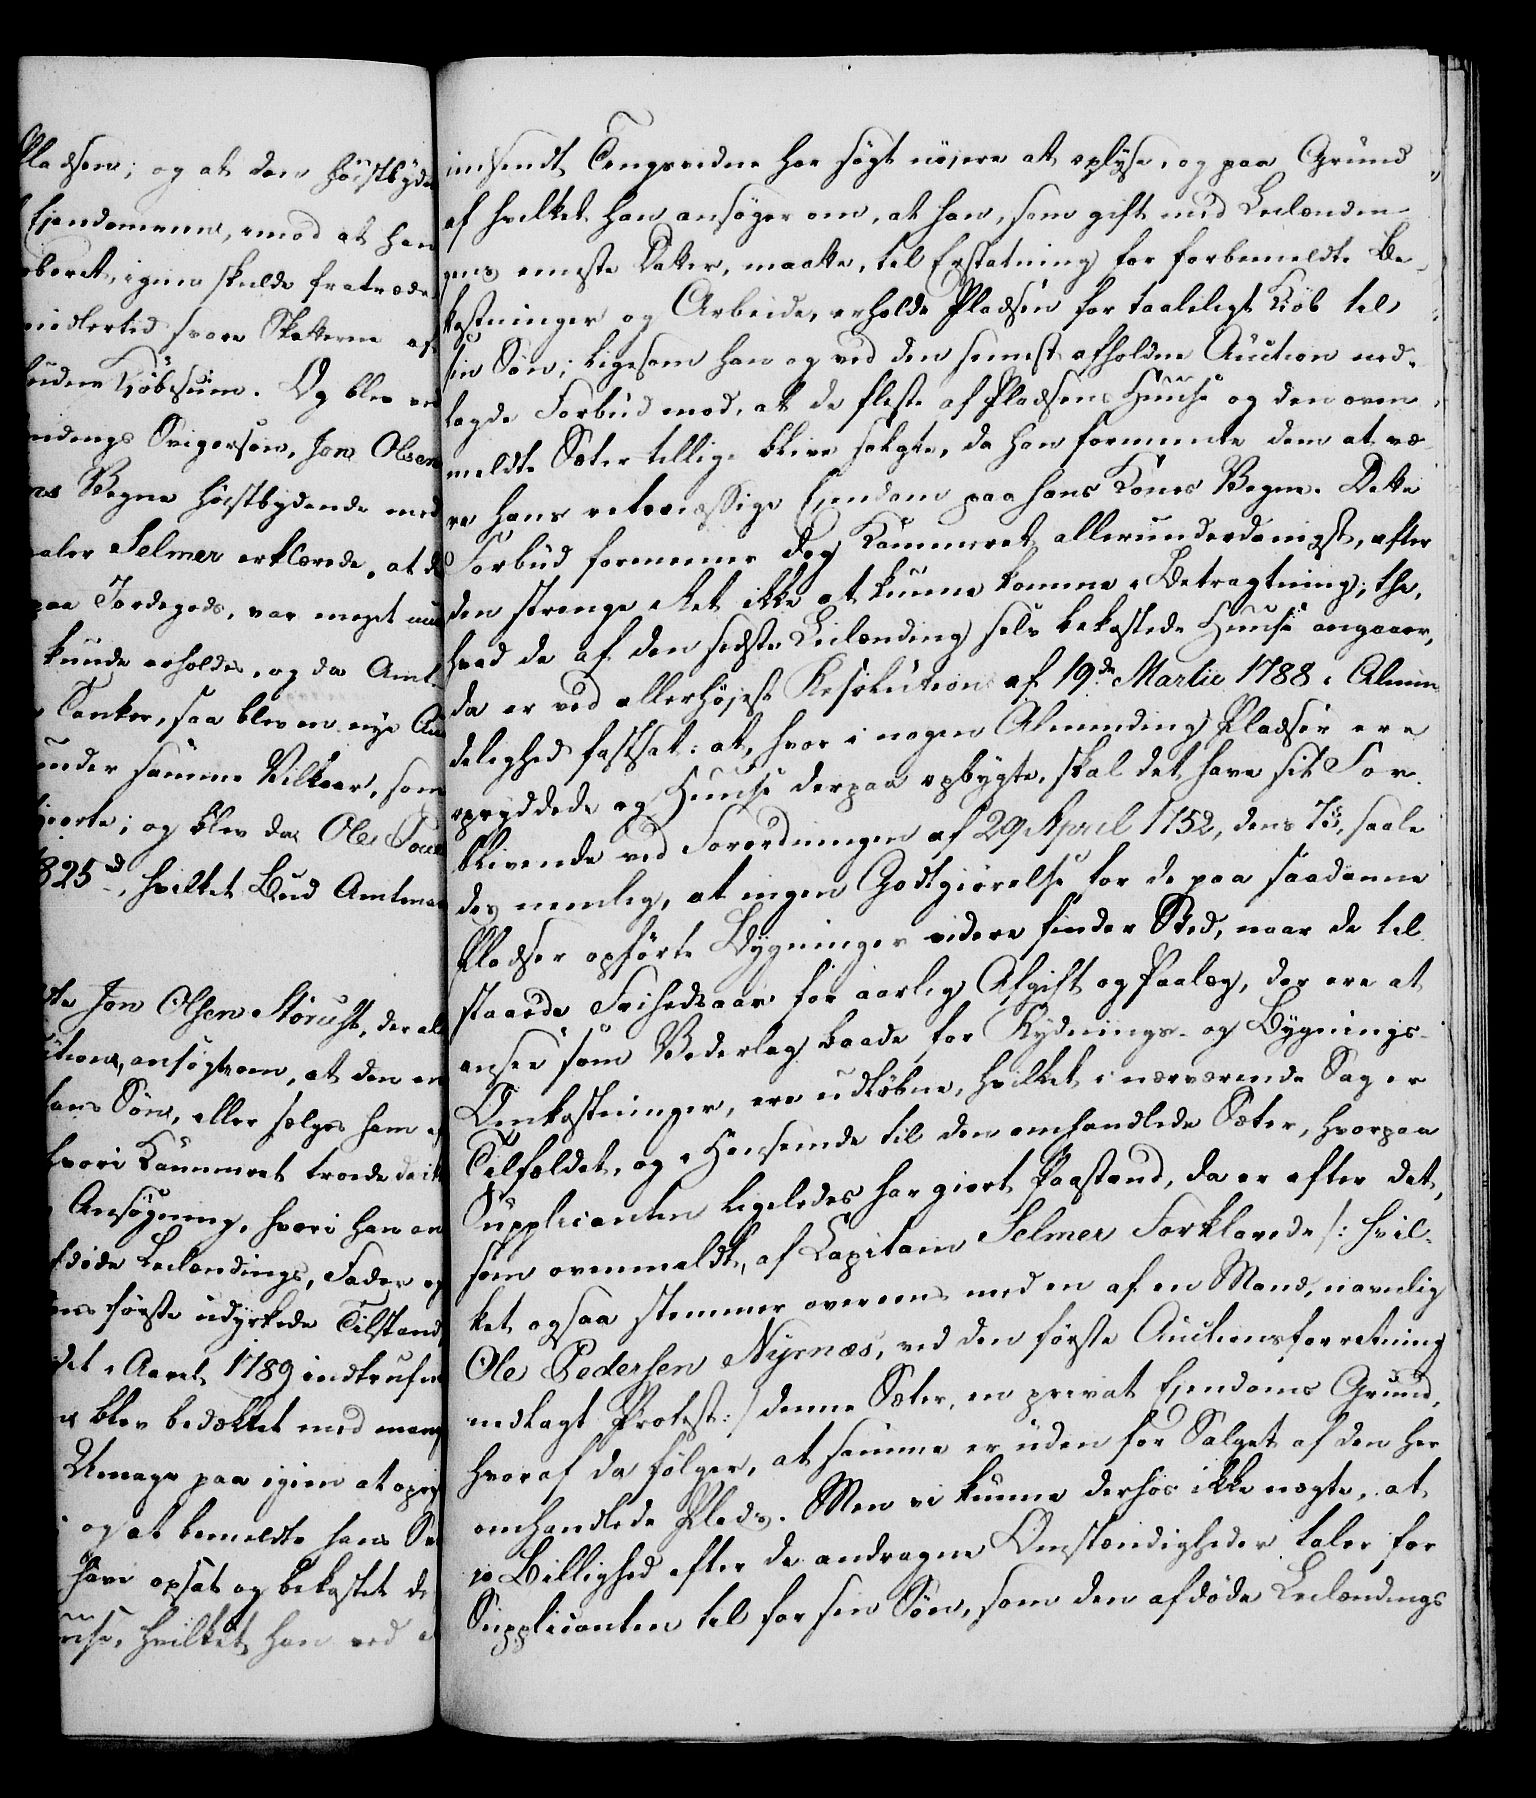 Pladsen; og at den høistbyde
Ejendommen, imod at han
oberet, igien skulde fratræde
midlertid svare Skatterne af
budne Kiöbesum. Og blev ved
ndings Svigersön, Jon Olsen
ns Vegne höistbydende med
aler Selmer erklærede, at d
paa Jordegods, var meget
kunde erholdes, og da Amt
Tanker, saa blev en nye Au
under samme Vilkaar, som
giorte; og blev da Ole
825 rd, hvilket Bud Amtma
te Jon Olsen Störuse, der al
ansögte om, at den
hans Sön, eller sælges ham
hvori Kammeret troede
Ansögning, hvori han an
fdöde Leilændings, Fader og
ns förste udyrkede Tilstand
det i Aaret 1789 indtrufne
blev bedækket med mang
Umage paa igien at opry
og at bemeldte hans
have opsat og bekostet de
use, hvilket han ved
indsendt Tingsvidne har sögt nöiere at oplyse, og paa Grund
af hvilket han ansöger om, at han, som gift med Leilændin-
gens eneste Datter, maatte, til Erstatning for forbemeldte Be-
kostninger og Arbeide, erholde Pladsen for taaleligt Kiöb til
sin Sön; ligesom han og ved den senest afholdne Auction ned-
lagde Forbud mod, at de fleste af Pladsens Huuse og den oven
meldte Sæter tillige blive solgte, da han formeente dem at væ-
re hans retmæssige Ejendom paa hans Kones Vegne. Dette
Forbud formener dog Kammeret allerunderdanigst, efter
den strenge Ret ikke at kunne komme i Betragtning; thi,
hvad de af den sidste Leilænding selv bekostede Huuse angaaer,
da er ved allerhöjest Resolution af 19de Martii 1788 i Almin-
delighed fastsat: at, hvor i nogen Alminding Pladser ere
opryddede og Huuse derpaa opbygte, skal det have sit For-
blivende ved Forordningen af 29 April 1752, dens 7 §, saale-
des nemlig, at ingen Godtgiörelse for de paa saadanne
Pladser opförte Bygninger videre finder Sted, naar de til-
staaede Frihedsaar for aarlig Afgift og Paalæg, der ere at
ansee som Vederlag baade for Rydnings- og Bygnings-
Omkostninger, ere udlöbne, hvilket i nærværende Sag er
Tilfældet, og i Henseende til den omhandlede Sæter, hvorpaa
Supplicanten ligeledes har giort Paastand, da er efter det,
som ovenmeldt, af Capitain Selmer Forklarede /: hvil-
ket ogsaa stemmer overeens med en af en Mand, navnlig
Ole Pedersen Nyrnæs, ved den förste Auctionsforretning
nedlagt Protest :/ denne Sæter, en privat Ejendoms Grund,
hvoraf da fölger, at samme er uden for Salget af den her
omhandlede Plads. Men vi kunne derhos ikke nægte, at
jo Billighed efter de andragne Omstændigheder taler for
Supplicanten til for sin Sön, som den afdöde Leilændings